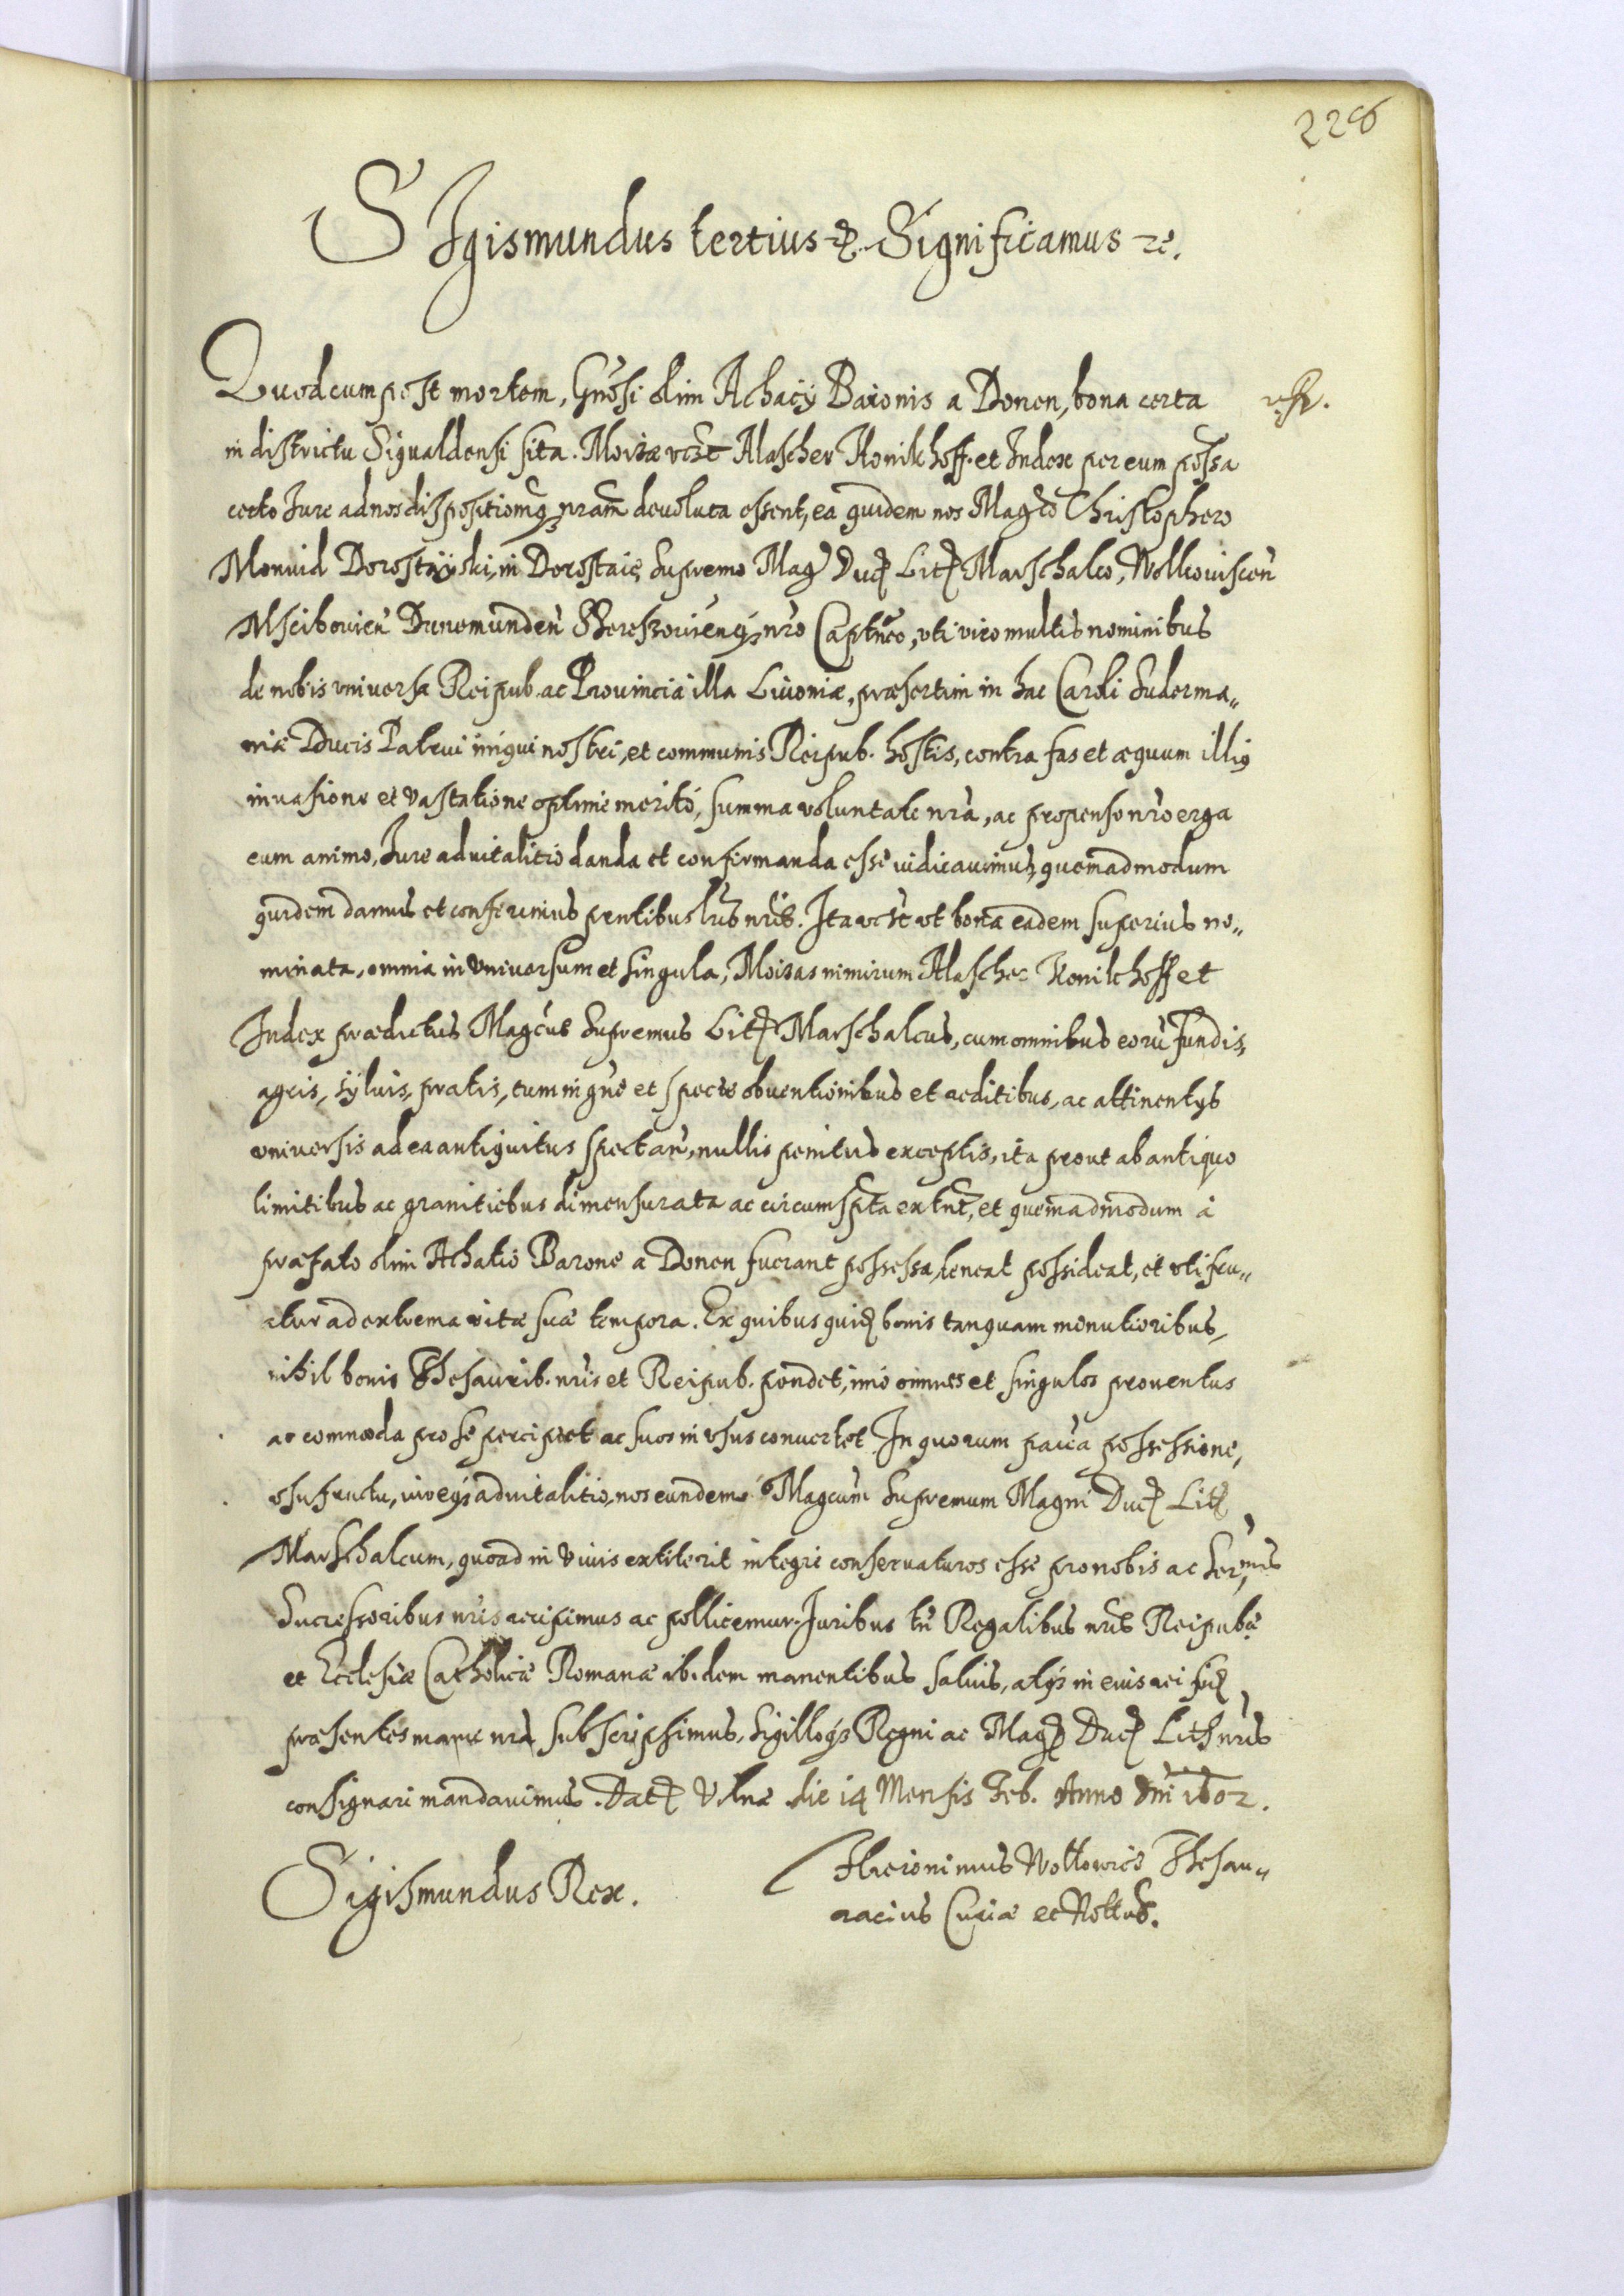 228
SIgismundus tertius etc. Significamus etc.
Quod cum post mortem, Gnosi olim Achacÿ Baronis a Donen, bona certa
in districtu Sigualdensi sita. Moizæ vczt Alascher Konikhoff et Index per eum possa
certo Jure ad nos dispositionemq nram deuoluta essent, ea quidem nos Magco Christophoro
Monuid Dorostaÿski, in Dorostaie, Supremo Mag Duc Lit Marschalco, Wolkouiscen
Mscibouien Dunemunden Szereszouienq nro Captneo, vti viro multis nominibus
de nobis vniuersa Reipub. ac Prouincia illa Liuoniæ, præsertim in hac Caroli Suderma„
niæ Ducis Patrui iniqui nostri, et communis Reipub. hostis, contra fas et æquum illiq
inuasione et vastatione optime merito, summa voluntate nra, ac propenso nro erga
eum animo, Jure aduitalitio danda et confirmanda esse iudicauimus, quemadmodum
quidem damus et conferimus pntibus lris nris. Ita vczt vt bona eadem superius no„
minata, omnia in vniuersum et singula, Moizas nimirum Alascher Konikhoff et
Index prædictus Magcus Supremus Lit Marschalcus, cum omnibus eoru fundis,
agris, sÿluis, pratis, tum in gne et specie obuentionibus et reditibus, ac attinentÿs
vniuersis ad ea antiquitus spectan, nullis penitus exceptis, ita prout ab antiquo
limitibus ac granitiebus dimensurata ac circumspta extnt, et quemadmodum à
præfato olim Achatio Barone a Donen fuerant possessa, teneat possideat, et vtifru„
atur ad extrema vitæ suæ tempora. Ex quibus quid bonis tanquam minutioribus,
nihil bonis Thesaurib. nris et Reipub. pendet, imò omnes et singulos prouentus
ac commoda pro se percipiet ac suos in vsus conuertet. In quorum pacca possessione,
vsufructu, iureq aduitalitio, nos eundem Magcum Supremum Magni Duc Lit
Marschalcum, quoad in viuis extiterit integre conseruaturos esse pro nobis ac Sermis
Successoribus nris recipimus ac pollicemur. Juribus tn Regalibus nris Reipubæ
et Ecclesiæ Catholicæ Romanæ ibidem manentibus saluis, atq in eius rei fid
præsentes manu nra subscripsimus, Sigilloq Regni ac Mag Duc Lith nris
consignari mandauimus. Dat Vilnæ die 14 Mensis Feb. Anno Dni 1602.
Sigismundus Rex.
Hieronimus Wollowicz Thesau„
rarius Curiæ et Nottus.